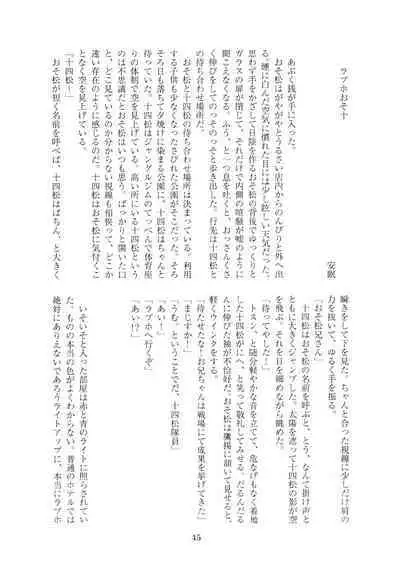 ラブホおそ十
安眠
あぶく銭が手に入った。
おそ松はがやがやとうるさい店内からのんびりと外へ出
る。煙に巻んだ空気に慣れた目には少し眩しい天気だった。
思わず手をかざして日陰を作るおそ松の背後でゆっくりと
ガラスの扉が閉じて、それだけで内側の喧騒が嘘のように
聞こえなくなる。ふう、と一つ息を吐くと、おっさんくさ
く伸びをしてのっそのっそと歩き出した。行先は十四松と
の待ち合わせ場所だ。
おそ松と十四松の待ち合わせ場所は決まっている。利用
する子供も少なくなったさびれた公園がそこだった。そろ
そろ日も落ち夕焼けに染まる公園に、十四松はちゃんと
待っていた。十四松はジャングルジムのてっぺんで体育座
りの体制で空を見上げている。高い所にいる十四松という
のは不思議だとおそ松はいつも思う。ぱっかりと開いた口
と、どこ見ているのか分からない視線も相俟って、どこか
遠い存在のように感じるのだ。十四松はおそ松に気付くこ
となく空を見上げている。
「十四松ー！」
おそ松が短く名前を呼べば、十四松はぱちん、と大きく
瞬きをして下を見た。ちゃんと合った視線に少しだけ肩の
力を抜いて、ゆるく手を振る。
「おそ松兄さん！」
十四松はおそ松の名前を呼ぶと、とう、なんて掛け声と
ともに大きくジャンプした。太陽を遮って十四松の影が空
を飛ぶ。それを目を細めながら眺めた。
「待ってやしたー！」
トスン、と随分軽やかな音を立てて、危なげもなく着地
した十四松がにへ、と笑って敬礼してみせる。だるんだる
んに伸びた袖が不恰好だ。おそ松は鷹揚に頷いて見せると、
軽くウインクをする。
「待たせたな！お兄ちゃんは戦場にて成果を挙げてきた」
「まじすか！」
「うむ。ということでだ、十四松隊員」
「あい！」
「ラブホへ行くぞ」
「あい!?」
いそいそと入った部屋は赤と青のライトに照らされてい
た。ものの本当の色がよくわからない。普通のホテルでは
絶対にありえないであろうライトアップに、本当にラブホ
45